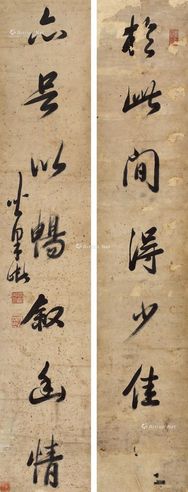 於此間得少佳
亦足以暢叙幽情